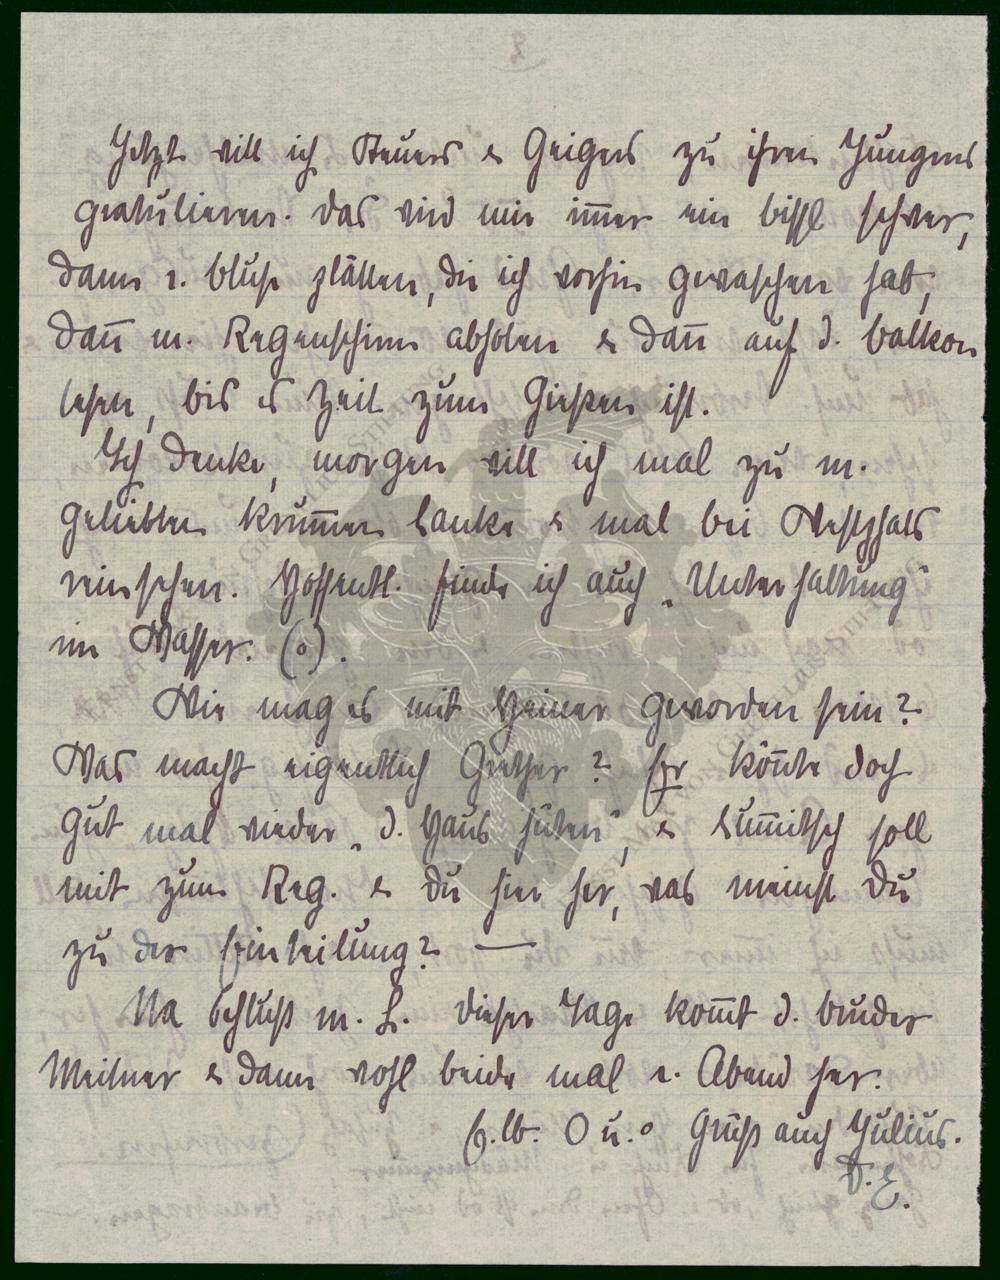 2
Jetzt will ich Steuers & Geigers zu ihren Jungens
gratulieren. Das wird mir im̅er ein bissl schwer,
dann e. Bluse plätten, die ich vorhin gewaschen hab,
dan̅ m. Regenschirm abholen & dan̅ auf d. Balkon
lesen, bis es Zeit zum Gießen ist.
Ich denke, morgen will ich mal zu m.
geliebten Krum̅en Lanke & mal bei Westphals
reinsehen. Hoffentl. finde ich auch „Unterhaltung"
im Wasser. (o).
Wie mag es mit Heiner geworden sein?
Was macht eigentlich Grether? Er kön̅te doch
gut mal wieder „d. Haus hüten", & Lum̅itsch soll
mit zum Reg. & du hier her, was meinst Du
zu der Einteilung? —
Na Schluß m. L. dieser Tage kom̅t d. Bruder
Meisner & dann wohl beide mal e. Abend her.
E. lb. O u. o Gruß auch Julius.
D. E.